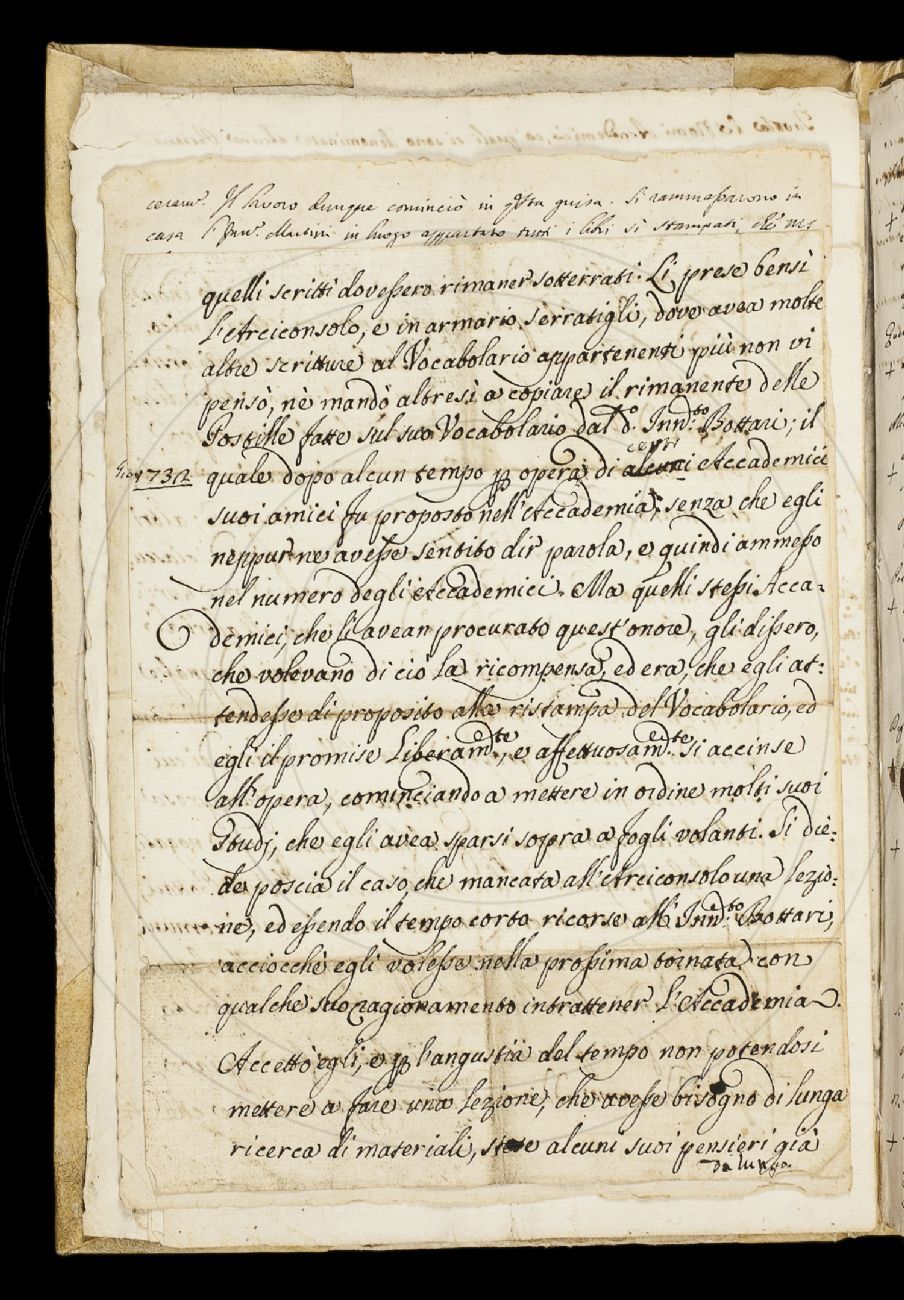 ceram.e Il lavoro dunque cominciò in q.sta guisa. Si rammassarono in
casa Martini in luogo appartato tutti i libri sì stampati, che ms
quelli scritti dovessero rimaner sotterrati. Li prese bensì
l'Arciconsolo, e in armario serratigli, dove avea molte
altre scritture al Vocabolario appartenenti più non vi
pensò, nè mandò altresì a copiare il rimanente delle
Postille fatte sul suo Vocabolario dal d.o Inn.to Bottari; il
certi
1732 quale dopo alcun tempo p opera di alcuni Accademici
suoi amici fu proposto nell'Accademia, senza che egli
neppur ne avesse sentito dir parola, e quindi ammesso
nel numero degli Accademici. Ma quelli stessi Acca-
demici, che li avean procurato quest'onore, gli dissero,
che volevano di ciò la ricompensa, ed era, che egli at-
tendesse di proposito alla ristampa del Vocabolario, ed
egli il promise liberam.te, e affettuosam.te si accinse
all'opera, cominciando a mettere in ordine molti suoi
Studj, che egli avea sparsi sopra a fogli volanti. Si diè-
de poscia il caso, che mancata all'Arciconsolo una lezio-
ne, ed essendo il tempo corto ricorse all' Inn.to Bottari,
acciocchè egli volesse nella prossima tornata con
qualche suo ragionamento intrattener l'Accademia.
Accettò egli, e p l'angustia del tempo non potendosi
mettere a fare una lezione, che avesse bisogno di lunga
ricerca di materiali, stese alcuni suoi pensieri già
da lunga